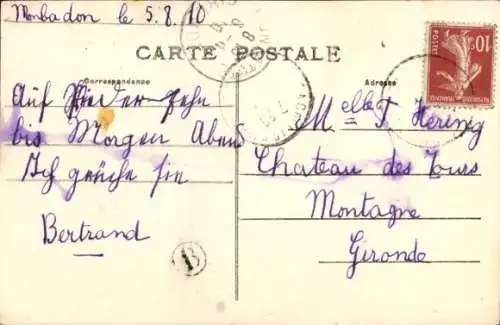 Monbadon le 5.8.10
CARTE POSTALE
Correspondance
Adresse
Auf Wieder sehn
bis Morgen Abend
Ich grüße sie
Bertrand
Melle T Hering
Chateau des Tours
Montagne
Gironde
10c
POSTES
REPUBLIQUE FRANÇAISE
B